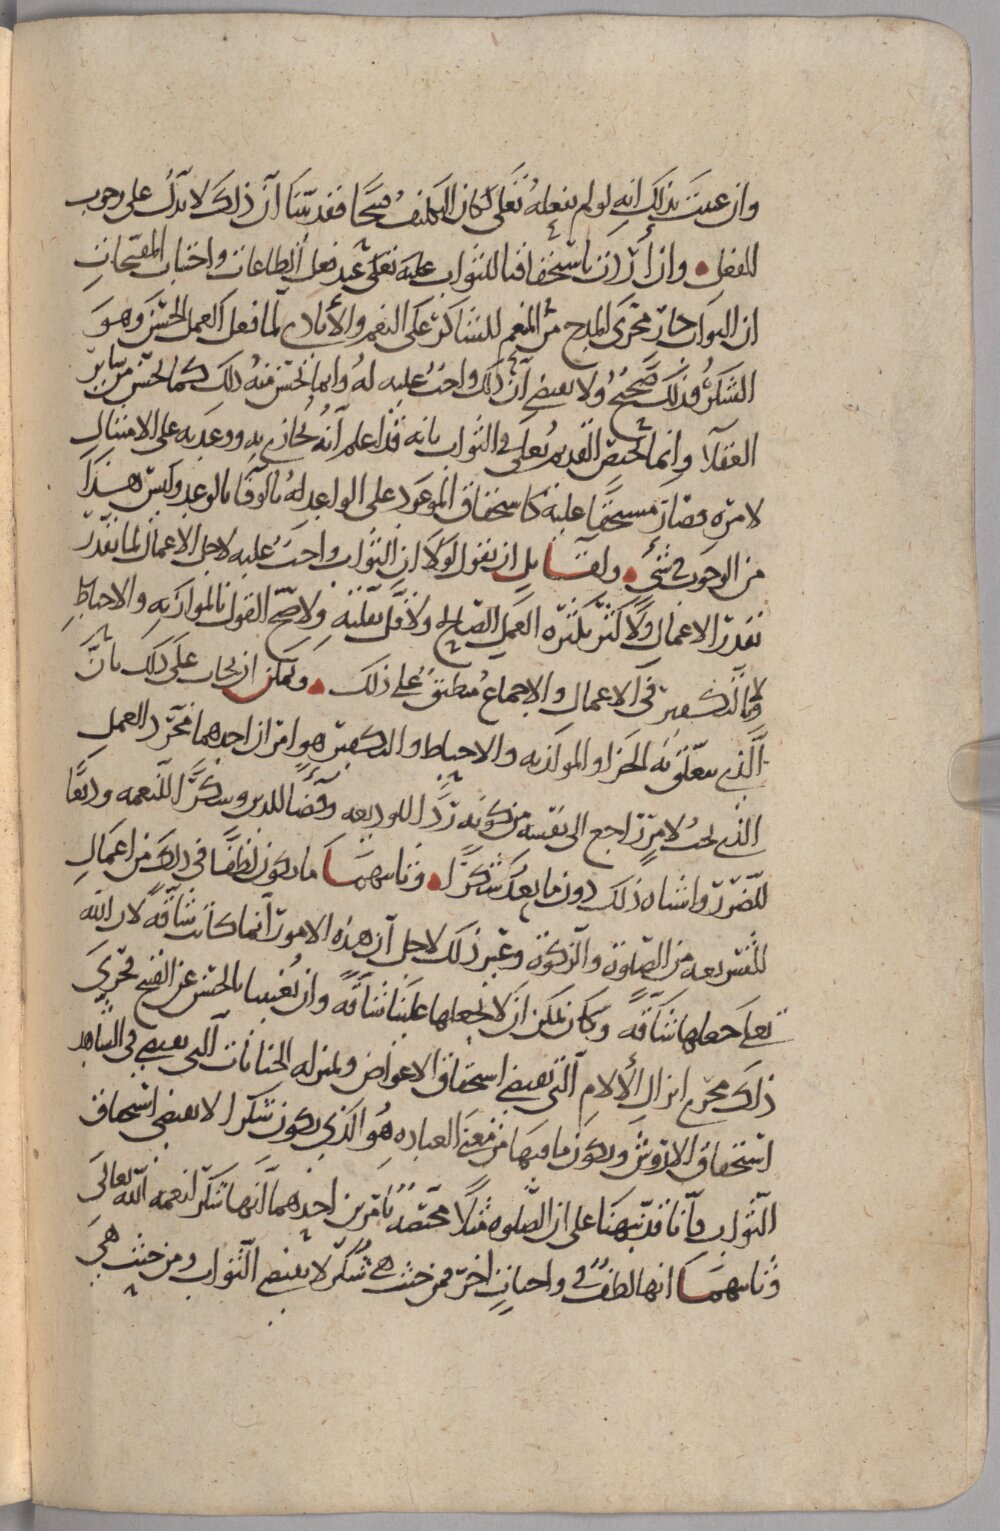 وان عنيت بذلك انه لو لم يفعله تعلى لكان التكليف قبيحا فقد بينا أن ذلك لا يدل على وجوب
الفعل وان أردت باستحقاقنا للثواب عليه تعلى عند فعل الطاعات واجتناب المقبحات
ان الثواب جار مجرى المدح من المنعم للشاكر على النعم والأيادي لما فعل العمل الحسن وهو
الشكر فذلك صحيح ولا يقتضي أن ذلك واجب عليه له وانما يحسن منه ذلك كما يحسن من سائر
العقلا وانما يختص القديم تعلى في الثواب بانه قد اعلم أنه يجازي به ووعد به على الامتثال
لامره فصار مستحقا عليه كاستحقاق الموعود على الواعد له بالوفا بالوعد وليس هذا
من الوجوب في شئ ولقائل ان يقول لولا ان الثواب واجب عليه لاجل الاعمال لما تقدر
بقدر الاعمال ولا كثر بكثره العمل الصالح ولا قل بقلته ولا صح القول بالموازنه والاحباط
والتكفير في الاعمال والاجماع منطبق على ذلك ويمكن ان يجاب على ذلك بان
الذي يتعلق به الجزا والموازنه والاحباط والتكفير هو امران احدهما مجرد العمل
الذي يجب لامر راجع الى نفسه من كونه ردا للوديعه وقضا للدين وشكرا للنعمه ودفعا
للضرر واشباه ذلك دون ما يعد شكرا وثانيهما ما يكون لطفا في ذلك من اعمال
الشريعه من الصلوة والزكوة وغير ذلك لاجل أن هذه الامور انما كانت شاقه لان الله
تعلى جعلها شاقه وكان يمكن ان لا يجعلها علينا شاقه وان يغنينا بالحسن عن القبيح فجرى
ذلك مجرى انزال الألام التي تقتضي استحقاق الاعواض وبمنزله الجنايات التي تقتضي في الشاهد
استحقاق الاروش ويكون ما فيها من معنى العباده هو الذي يكون شكرا لا يقتضي استحقاق
الثواب فأنا قد نبهنا على ان الصلوه مثلا مختصه بامرين احدهما أنها شكر لنعمه الله تعالى
وثانيهما انها لطف في واجبات اخر فمن حيث هي شكر لا يقتضي الثواب ومن حيث هي